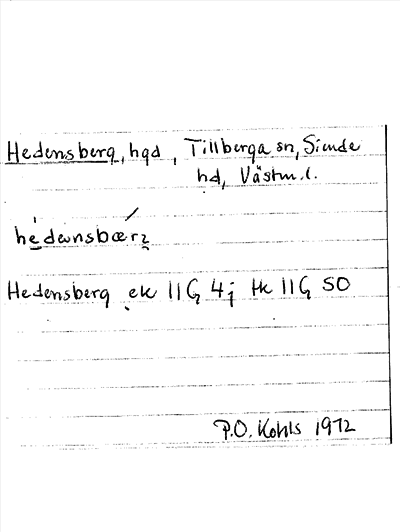 Hedensberg, hgd, Tillberga sn, Siende
hd, Västm.l.
hedənsbærʒ
Hedensberg ek 11G 4j tk 11G SO
P.O. Kohls 1972